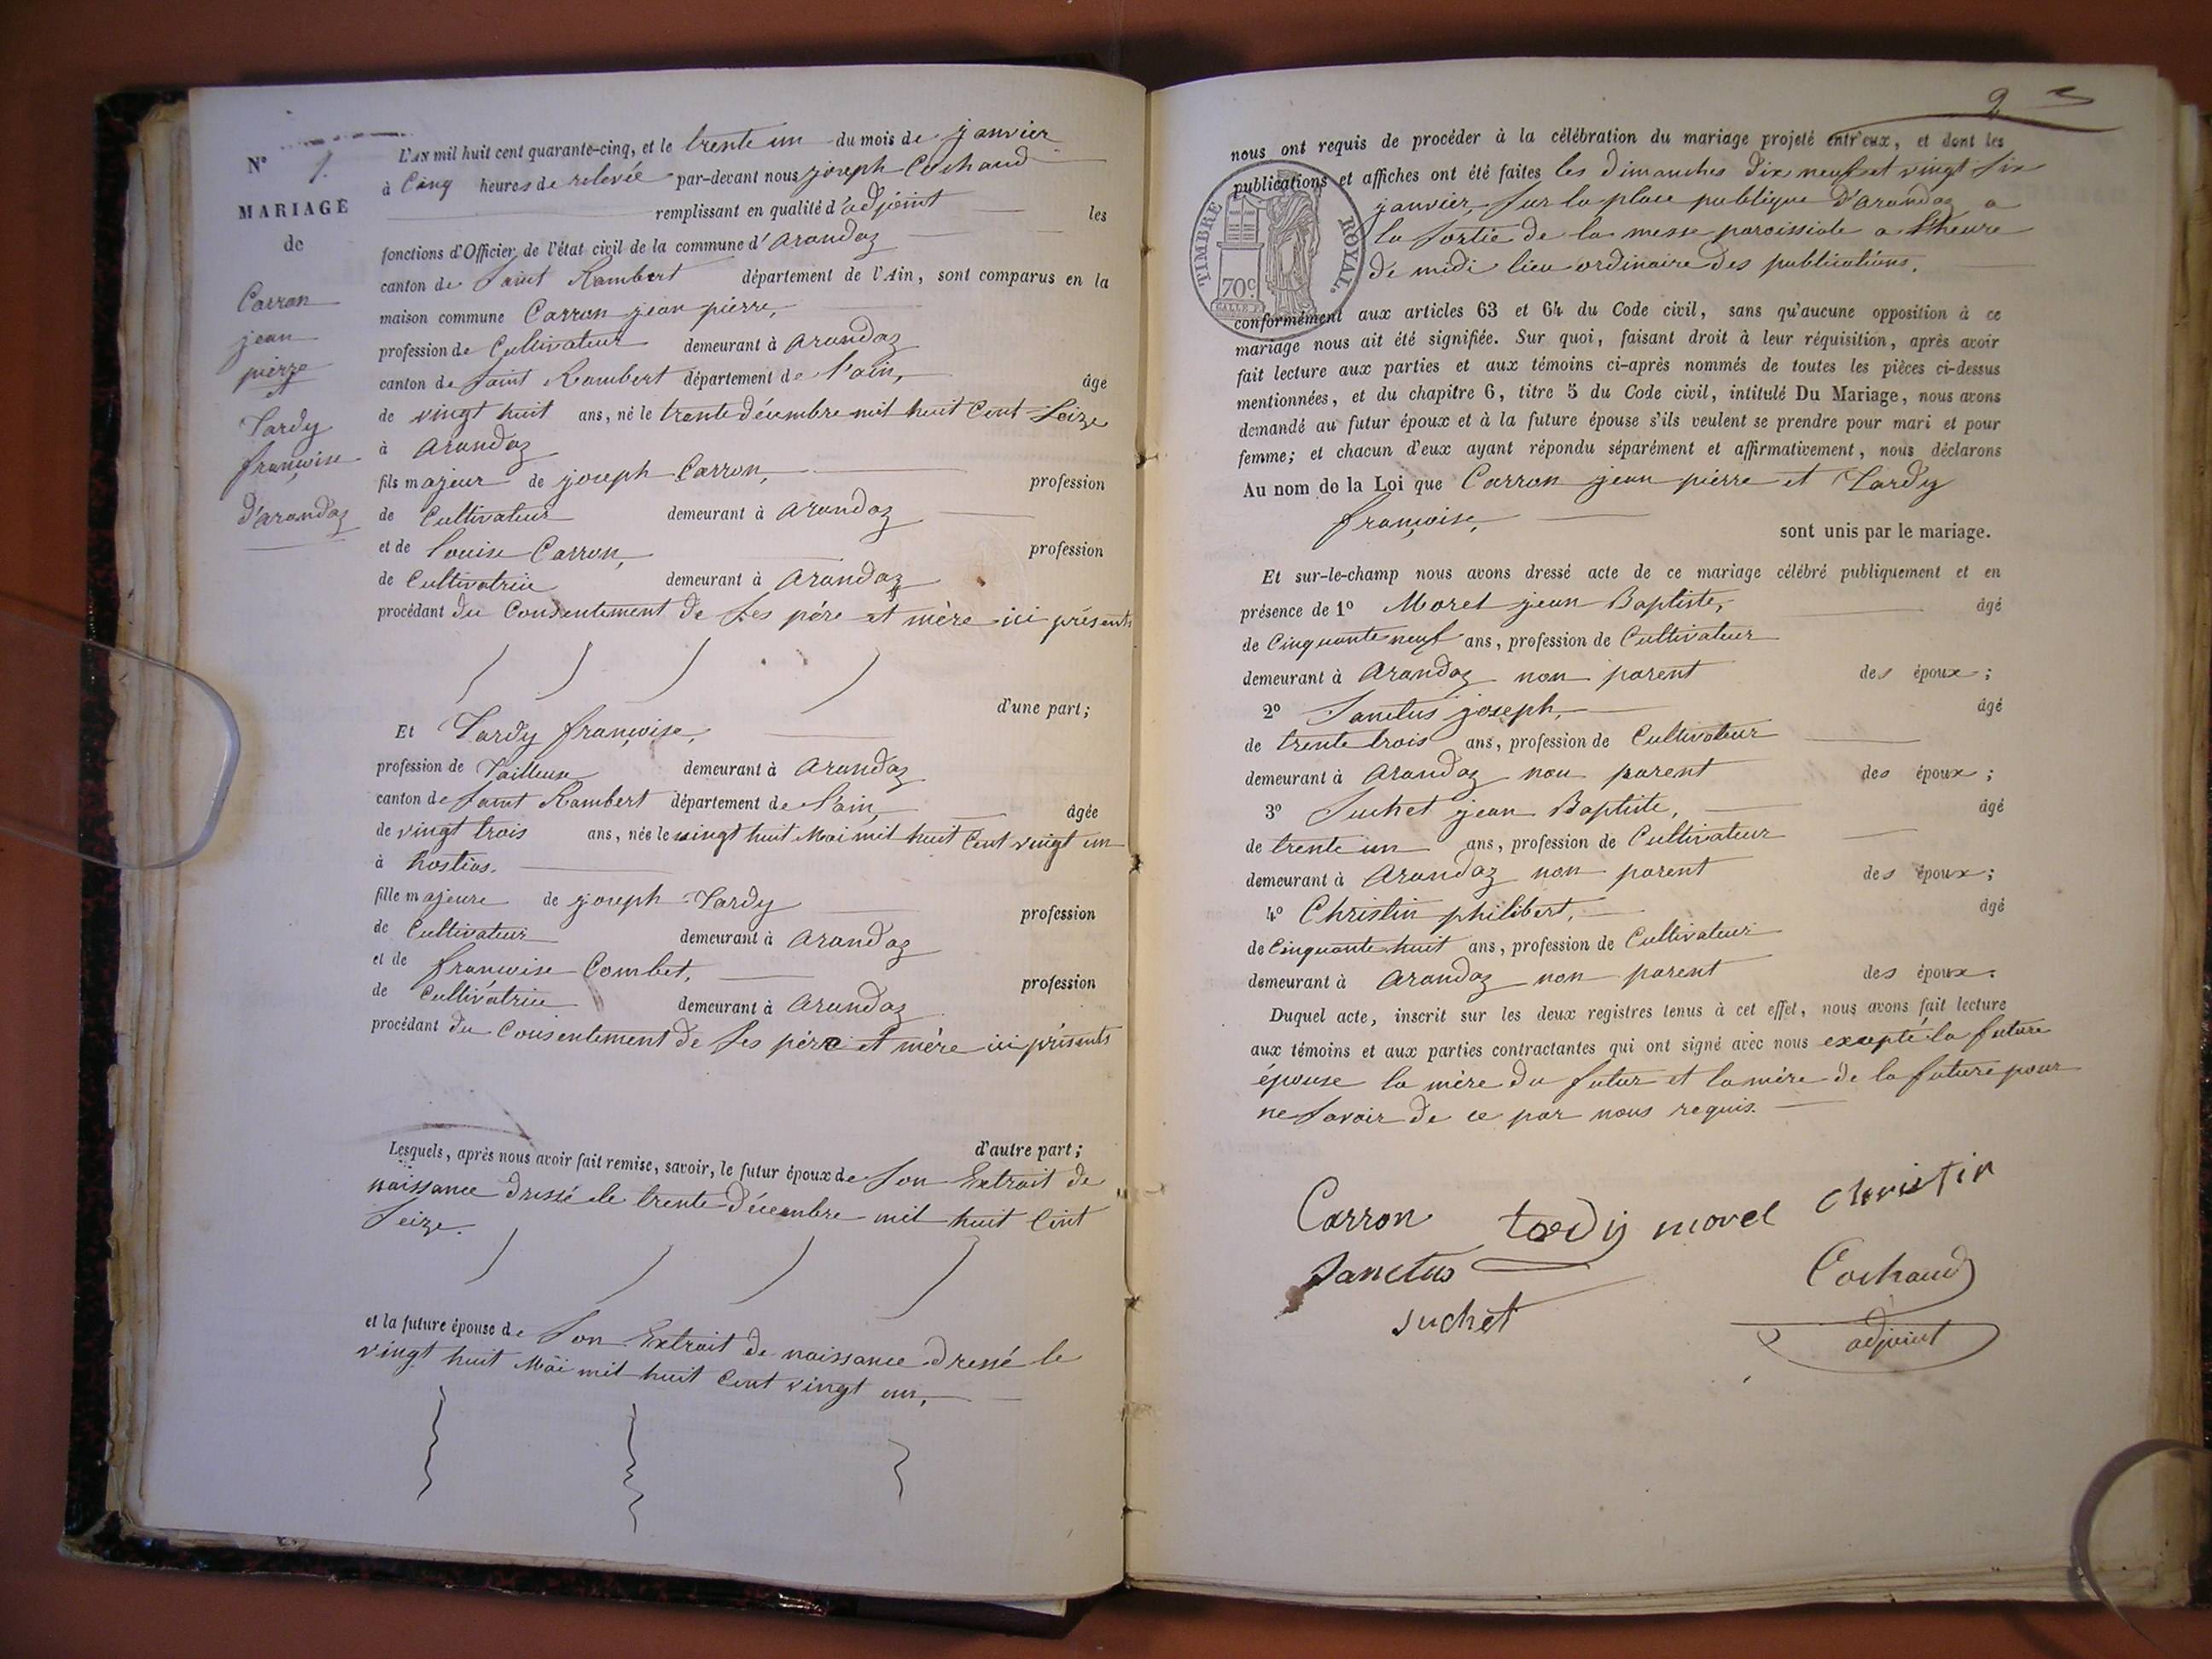 N° 1.
MARIAGE
de
Carron
jean
pierre
et
Tardy
françoise
d'arandaz
L'AN mil huit cent quarante-cinq, et le trente un du mois de janvier
à Cinq heures de relevée par-devant nous joseph Cochaud
remplissant en qualité d'adjoint les
fonctions d'Officier de l'état civil de la commune d'arandaz
canton de Saint Rambert département de l'Ain, sont comparus en la
maison commune Carron jean pierre,
profession de Cultivateur demeurant à arandaz
canton de Saint Rambert département de l'ain, âgé
de vingt huit ans, né le trente décembre mil huit Cent Seize
à arandaz
fils majeur de joseph Carron, profession
de Cultivateur demeurant à arandaz
et de Louise Carron, profession
de Cultivatrice demeurant à arandaz
procédant du Consentement de Ses père et mère ici présents
d'une part;
Et Tardy françoise,
profession de Tailleuse demeurant à arandaz
canton de Saint Rambert département de l'ain, âgée
de vingt trois ans, née le vingt huit Mai mil huit Cent vingt un
à hostias.
fille majeure de joseph Tardy profession
de Cultivateur demeurant à arandaz
et de françoise Combet, profession
de Cultivatrice demeurant à arandaz
procédant du Consentement de Ses père et mère ici présents
d'autre part;
Lesquels, après nous avoir fait remise, savoir, le futur époux de Son Extrait de
naissance dressé le trente Décembre mil huit Cent
Seize.
et la future épouse de Son Extrait de naissance dressé le
vingt huit Mai mil huit Cent vingt un,
2
nous ont requis de procéder à la célébration du mariage projeté entr'eux, et dont les
publications et affiches ont été faites les dimanches dix neuf et vingt Six
janvier, Sur la place publique d'arandaz a
la Sortie de la messe paroissiale a l'heure
de midi lieu ordinaire des publications.
TIMBRE ROYAL.
70c
conformément aux articles 63 et 64 du Code civil, sans qu'aucune opposition à ce
mariage nous ait été signifiée. Sur quoi, faisant droit à leur réquisition, après avoir
fait lecture aux parties et aux témoins ci-après nommés de toutes les pièces ci-dessus
mentionnées, et du chapitre 6, titre 5 du Code civil, intitulé Du Mariage, nous avons
demandé au futur époux et à la future épouse s'ils veulent se prendre pour mari et pour
femme; et chacun d'eux ayant répondu séparément et affirmativement, nous déclarons
Au nom de la Loi que Carron jean pierre et Tardy
françoise, sont unis par le mariage.
Et sur-le-champ nous avons dressé acte de ce mariage célébré publiquement et en
présence de 1° Morel jean Baptiste, âgé
de Cinquante neuf ans, profession de Cultivateur
demeurant à arandaz non parent des époux;
2° Sanctus joseph, âgé
de trente trois ans, profession de Cultivateur
demeurant à arandaz non parent des époux;
3° Suchet jean Baptiste, âgé
de trente un ans, profession de Cultivateur
demeurant à arandaz non parent des époux;
4° Christin philibert, âgé
de Cinquante huit ans, profession de Cultivateur
demeurant à arandaz non parent des époux.
Duquel acte, inscrit sur les deux registres tenus à cet effet, nous avons fait lecture
aux témoins et aux parties contractantes qui ont signé avec nous excepté la future
épouse la mère du futur et la mère de la future pour
ne Savoir de ce par nous requis.
Carron tardy morel christin
Sanctus Cochaud
suchet adjoint